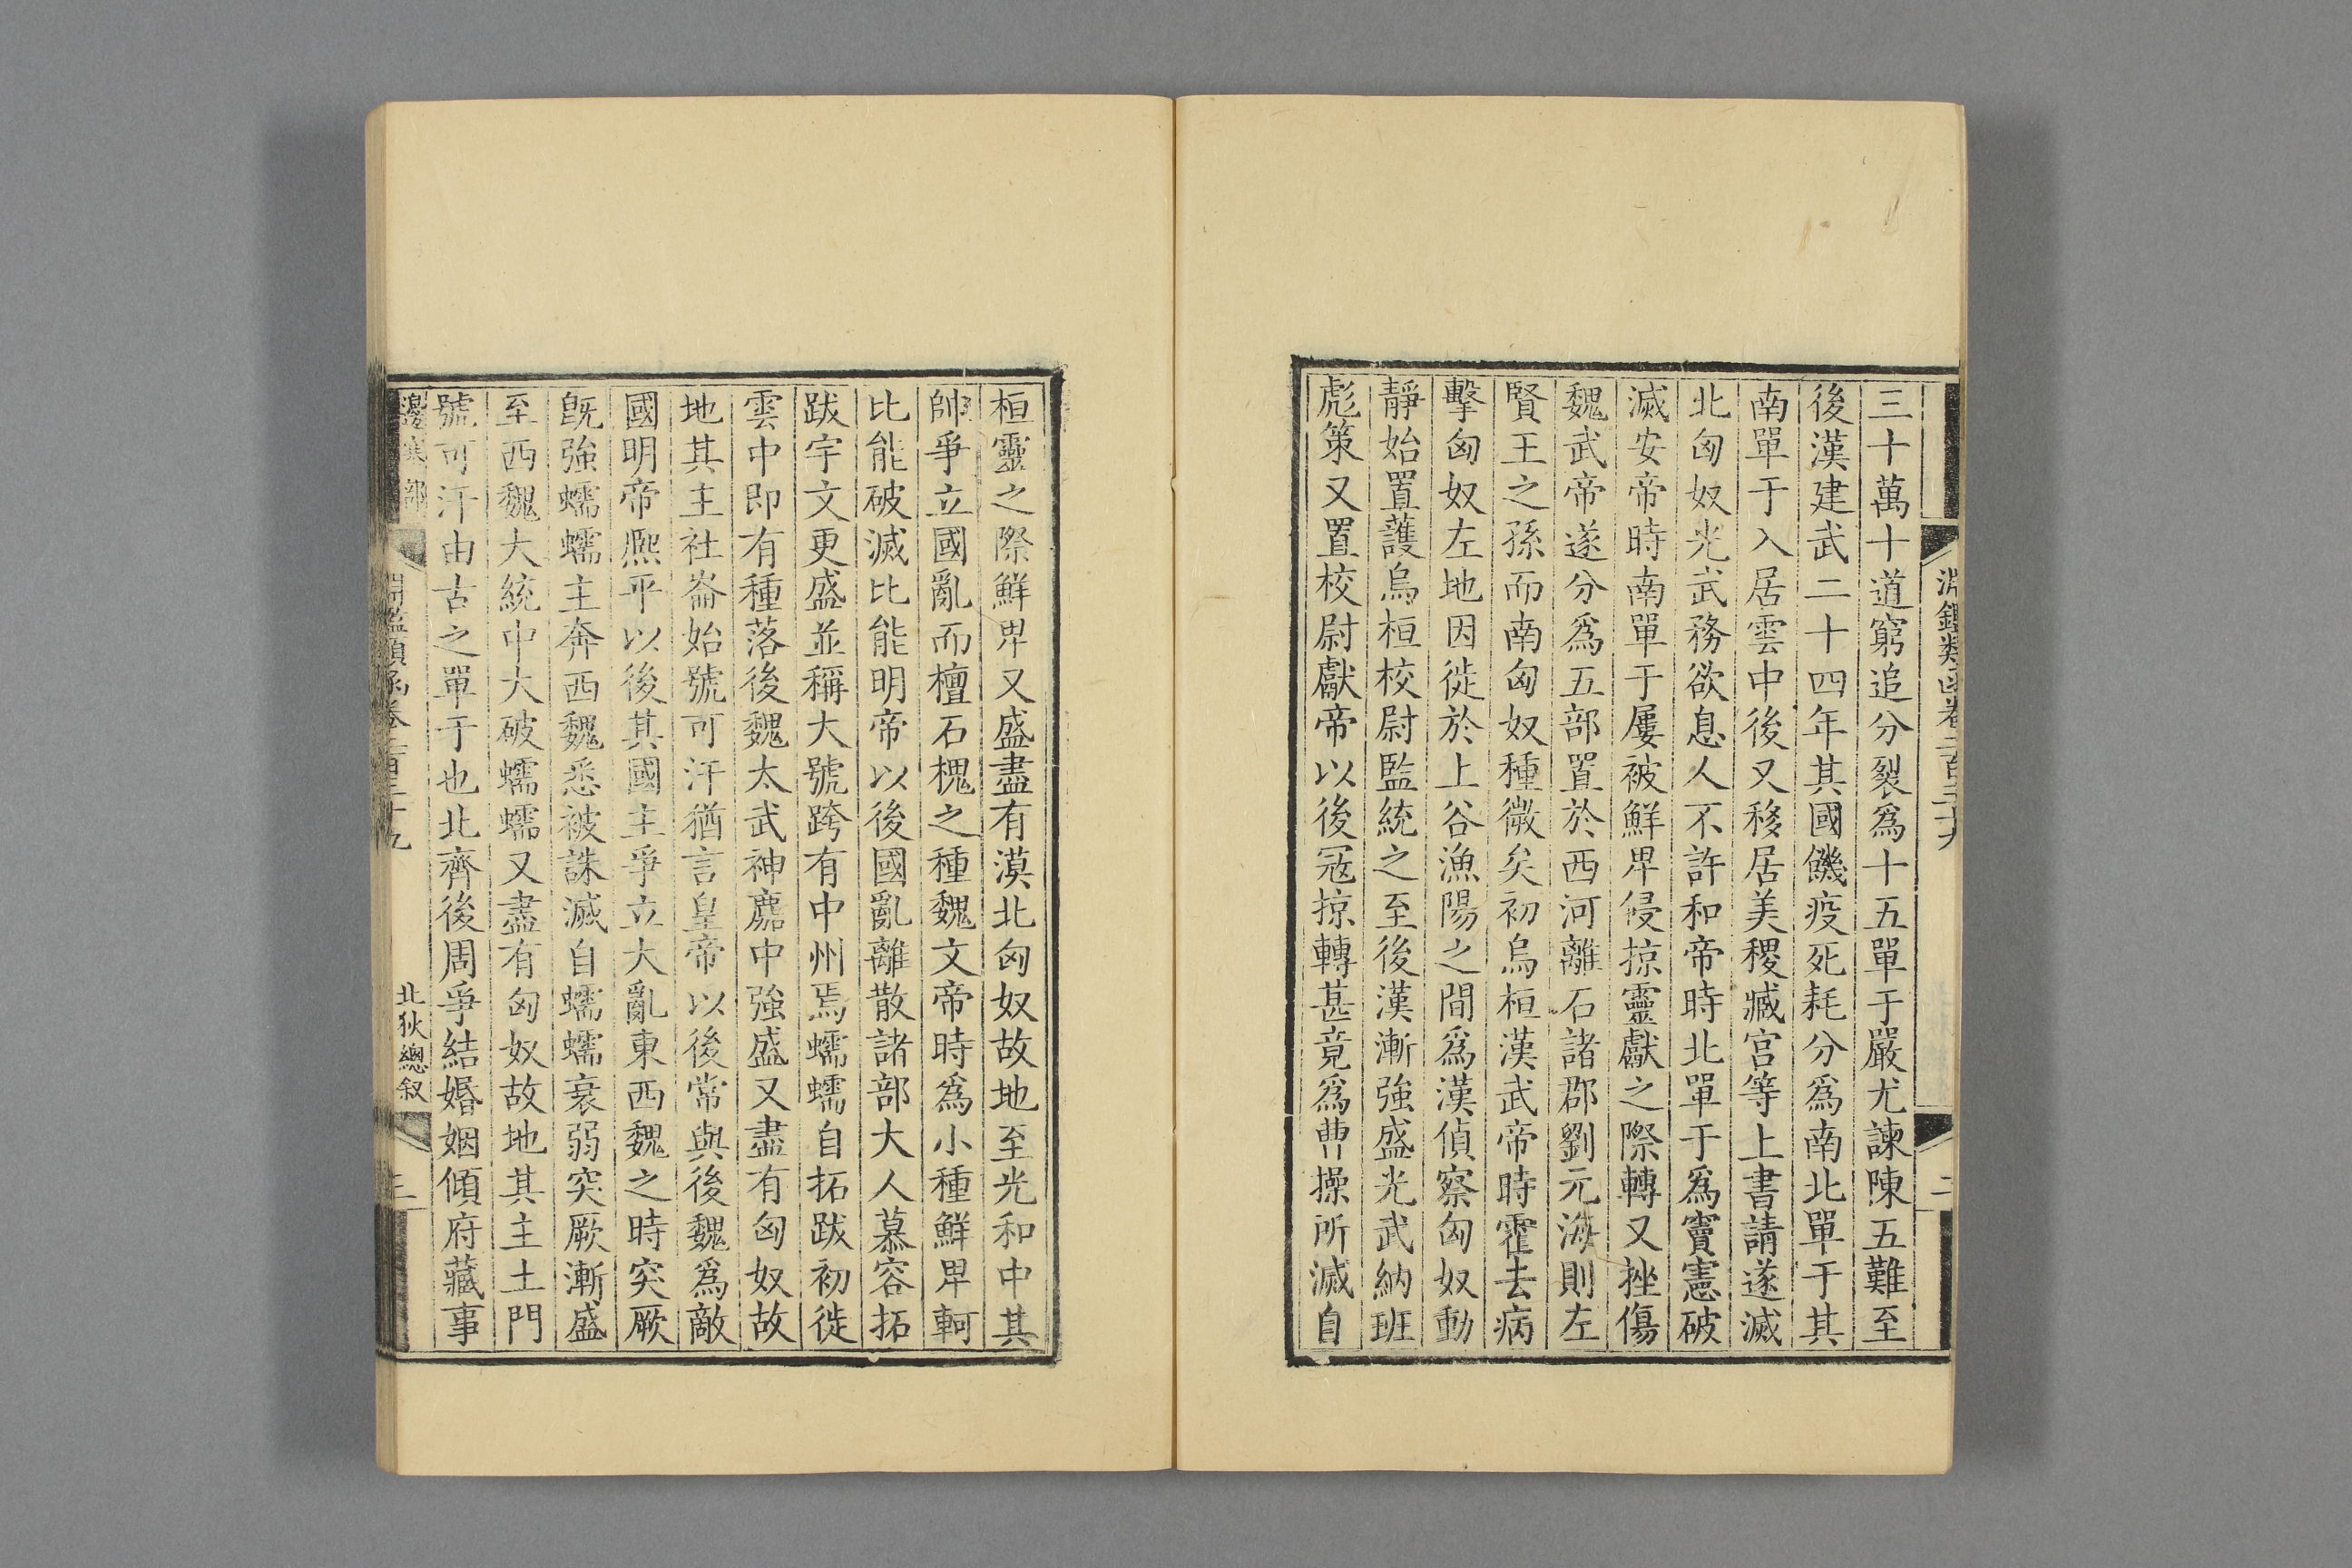 淵鑑類函卷二百三十九
二
三十萬十道窮追分裂爲十五單于嚴尤諫陳五難至
後漢建武二十四年其國饑疫死耗分爲南北單于其
南單于入居雲中後又移居美稷臧宮等上書請遂滅
北匈奴光武務欲息人不許和帝時北單于爲竇憲破
滅安帝時南單于屢被鮮卑侵掠靈獻之際轉又挫傷
魏武帝遂分爲五部置於西河離石諸郡劉元海則左
賢王之孫而南匈奴種微矣初烏桓漢武帝時霍去病
擊匈奴左地因徙於上谷漁陽之間爲漢偵察匈奴動
靜始置護烏桓校尉監統之至後漢漸強盛光武納班
彪策又置校尉獻帝以後冦掠轉甚竟爲曹操所滅自
桓靈之際鮮卑又盛盡有漠北匈奴故地至光和中其
帥爭立國亂而檀石槐之種魏文帝時爲小種鮮卑軻
比能破滅比能明帝以後國亂離散諸部大人慕容拓
跋宇文更盛並稱大號跨有中州焉蠕蠕自拓跋初徙
雲中即有種落後魏太武神䴥中強盛又盡有匈奴故
地其主社崙始號可汗猶言皇帝以後常與後魏爲敵
國明帝熈平以後其國主爭立大亂東西魏之時突厥
旣強蠕蠕主奔西魏悉被誅滅自蠕蠕衰弱突厥漸盛
至西魏大統中大破蠕蠕又盡有匈奴故地其主土門
號可汗由古之單于也北齊後周爭結婚姻傾府藏事
邊塞部
淵鑑類函卷二百三十九
北狄總叙
三